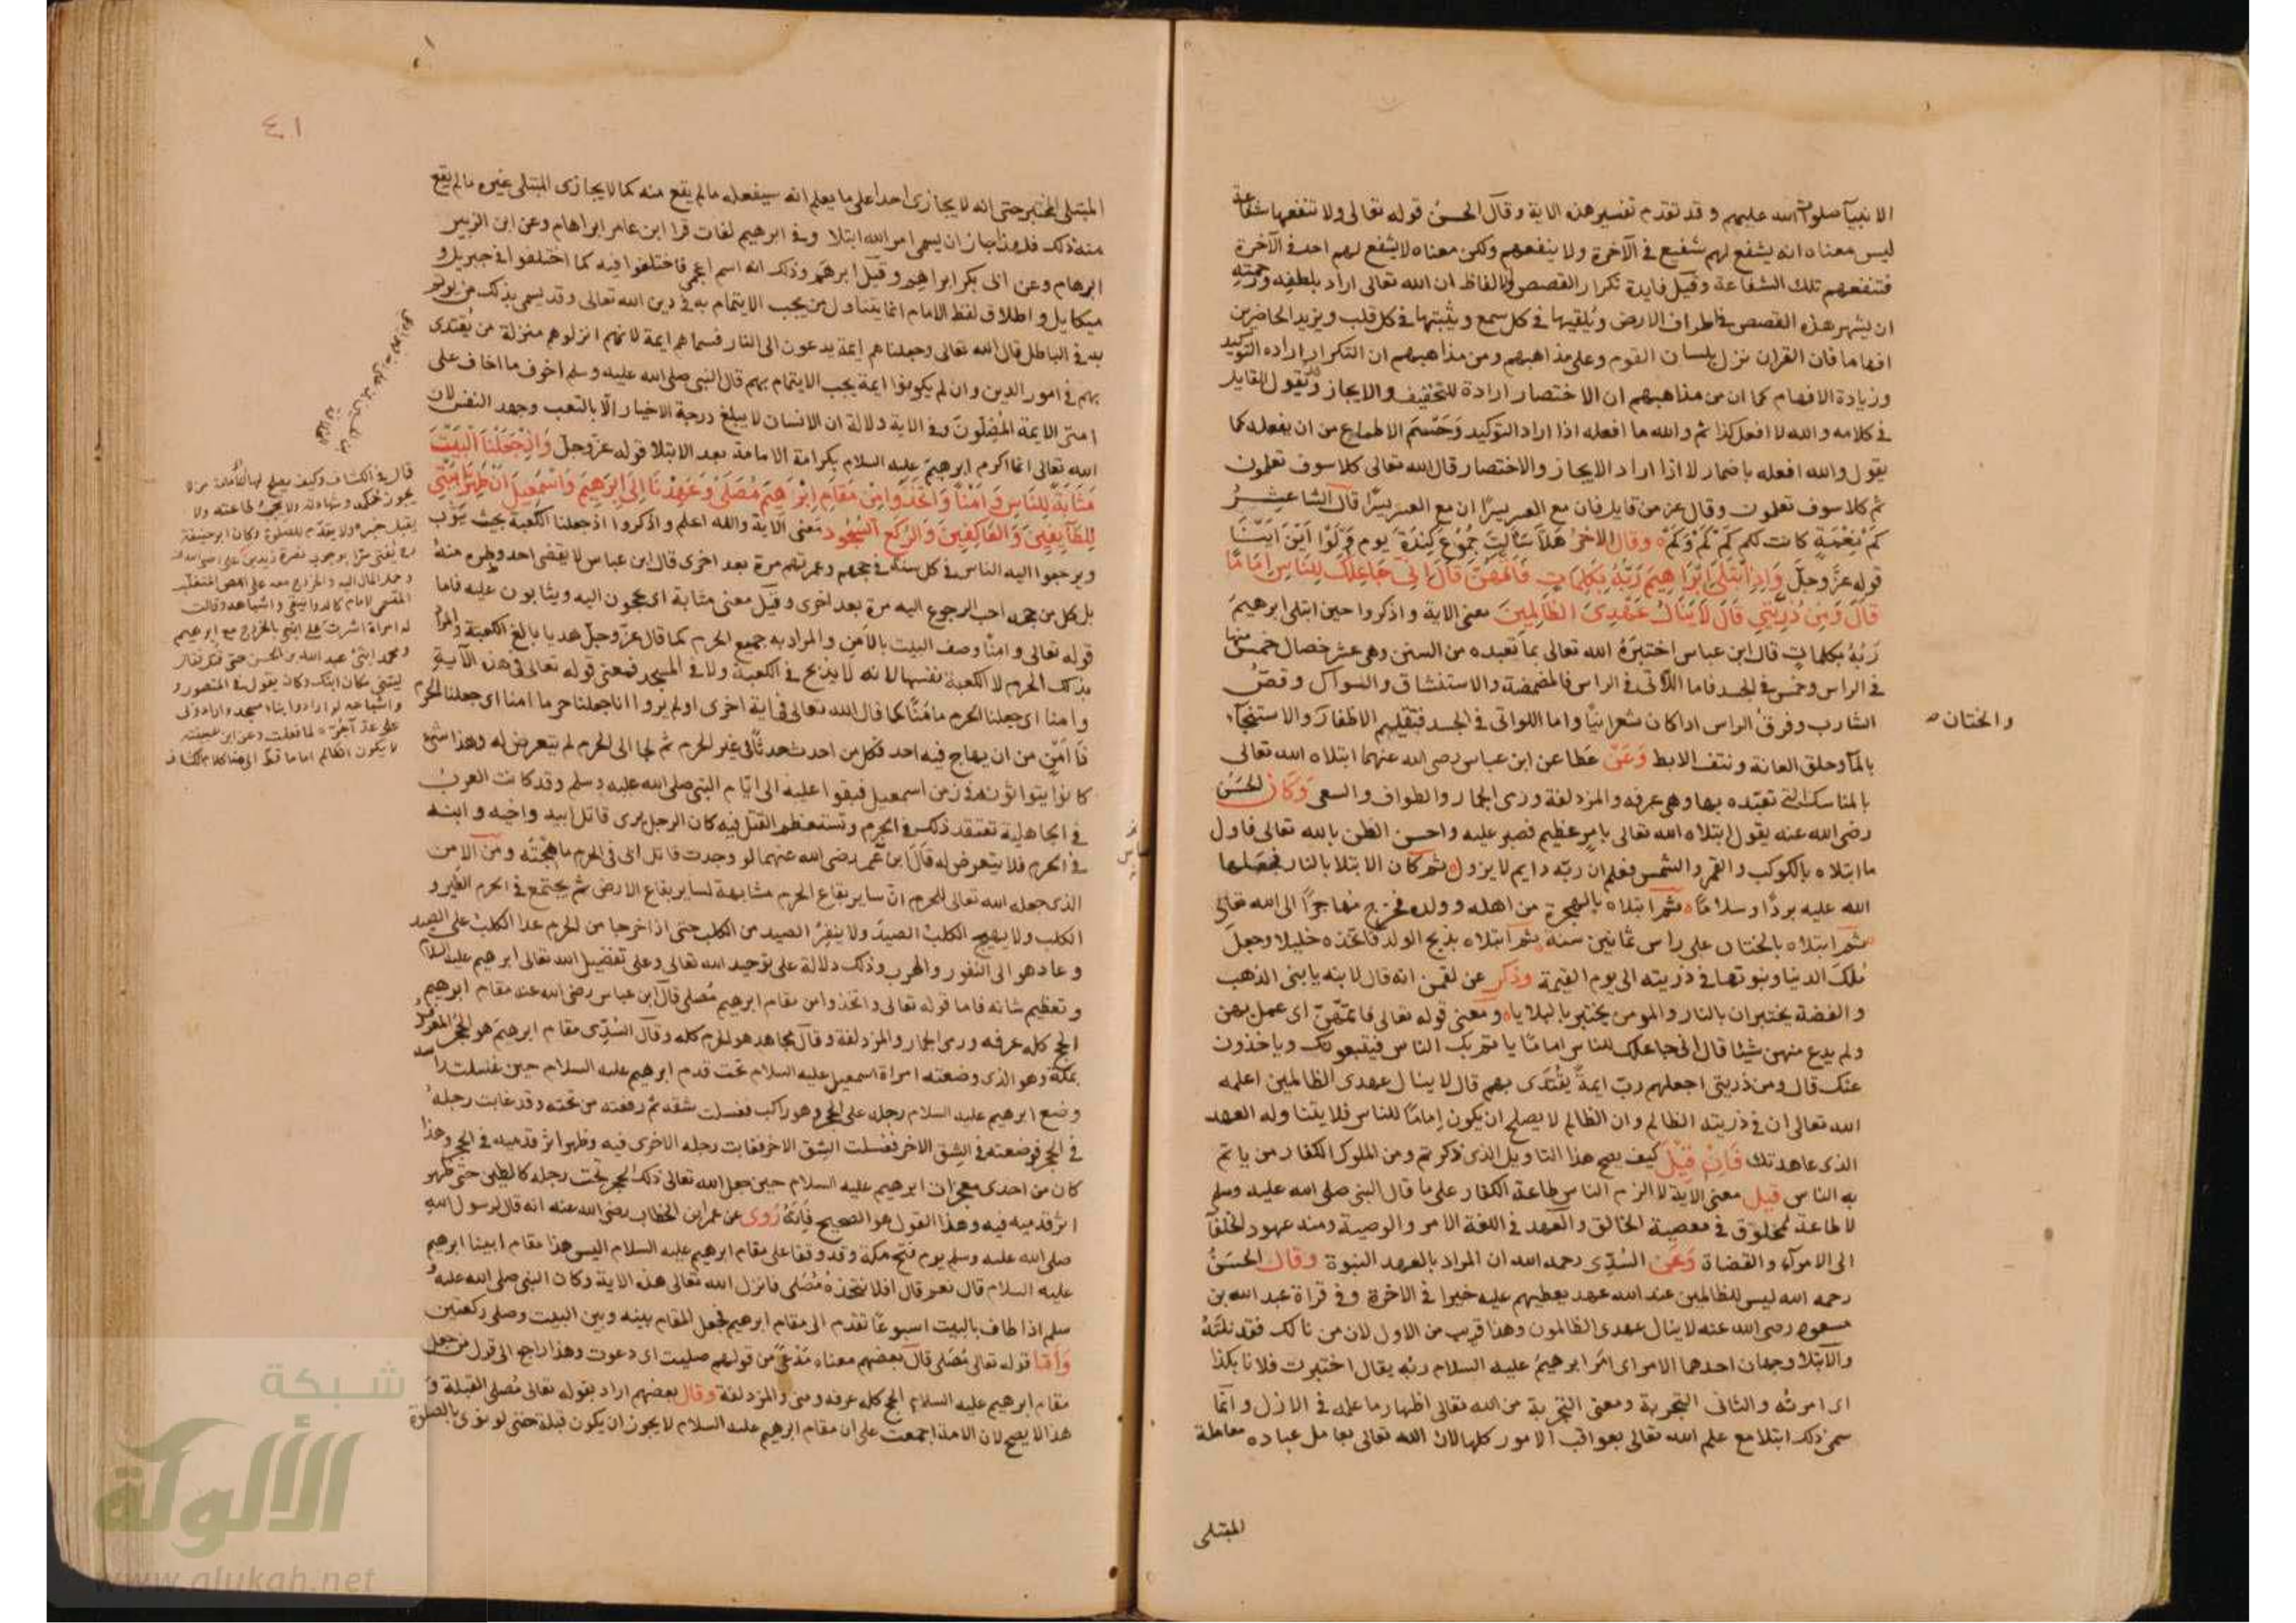 الانبيآ صلوات الله عليهم وقد تقدم تفسير هذه الاية وقال الحسن قوله تعالى ولا تنفعها شفاعة
ليس معناه انه يشفع لهم شفيع في الآخرة ولا ينفعهم ولكن معناه لا يشفع لهم احد في الآخرة
فتنفعهم تلك الشفاعة وقيل فايدة تكرار القصص والالفاظ ان الله تعالى اراد بلطفه ورحمته
ان يشهر هذه القصص في اطراف الارض ويلقيها في كل سمع ويثبتها في كل قلب ويزيد الحاضرين
افهاما فان القران نزل بلسان القوم وعلى مذاهبهم ومن مذاهبهم ان التكرار ارادة التوكيد
وزيادة الافهام كما ان من مذاهبهم ان الاختصار ارادة للتخفيف والايجاز ويقول القايل
في كلامه والله لا افعل كذا ثم والله ما افعله اذا اراد التوكيد وحسم الاطماع من ان يفعله كما
يقول والله افعله باضمار لا اذا اراد الايجاز والاختصار قال الله تعالى كلا سوف تعلمون
ثم كلا سوف تعلمون وقال عز من قايل فان مع العسر يسرًا ان مع العسر يسرًا قال الشاعر
كم نعمة كانت لكم كم كم وكم وقال الاخر هلا سالت جموع كندة يوم ولوا اين اينا
قوله عز وجل وَاِذِ ابْتَلَى اِبْرَاهِيمَ رَبُّهُ بِكَلِمَاتٍ فَاَتَمَّهُنَّ قَالَ اِنِّي جَاعِلُكَ لِلنَّاسِ اِمَامًا
قَالَ وَمِنْ ذُرِّيَّتِي قَالَ لَا يَنَالُ عَهْدِي الظَّالِمِينَ معنى الاية واذكروا حين ابتلى ابرهيم
ربه بكلمات قال ابن عباس اختبره الله تعالى بما تعبده من السنن وهي عشر خصال خمس منها
في الراس وخمس في الجسد فاما اللاتي في الراس فالمضمضة والاستنشاق والسواك وقص
الشارب وفرق الراس اذا كان شعرانيًا واما اللواتي في الجسد فتقليم الاظفار والاستنجآء
والختان صح
بالمآ وحلق العانة ونتف الابط وعن عطا عن ابن عباس رضى الله عنهما ابتلاه الله تعالى
بالمناسك التي تعبّده بها وهي عرفه والمزدلفة ورمى الجمار والطواف والسعى وكان الحسن
رضى الله عنه يقول ابتلاه الله تعالى بامر عظيم فصبر عليه واحسن الظن بالله تعالى فاول
ما ابتلاه بالكوكب والقمر والشمس فعلم ان ربه دايم لا يزول ثم كان الابتلا بالنار فجعلها
الله عليه بردًا وسلامًا ثم ابتلاه بالهجرة من اهله وولده فخرج مهاجرًا الى الله تعالى
ثم ابتلاه بالختان على راس ثمانين سنة ثم ابتلاه بذبح الولد فاتخذه خليلا وجعل
ملك الدنيا ونبوتها في ذريته الى يوم القيمة وذكر عن لقمن انه قال لابنه يا بنى الذهب
والفضة يختبران بالنار والمومن يختبر بالبلايا ومعنى قوله تعالى فاتمهنّ اى عمل بهن
ولم يدع منهن شيئا قال انى جاعلك للناس امامًا ياتم بك الناس فيتبعونك وياخذون
عنك قال ومن ذريتى اجعلهم ربّ ايمةً يقتدى بهم قال لا ينال عهدى الظالمين اعلمه
الله تعالى ان في ذريته الظالم وان الظالم لا يصلح ان يكون اِمامًا للناس فلا يتناوله العهد
الذى عاهدتك فان قيل كيف يصح هذا التاويل الذى ذكرتم ومن الملوك الكفار من ياتم
به الناس قيل معنى الاية لا الزم الناس طاعة الكفار على ما قال النبي صلى الله عليه وسلم
لا طاعة لمخلوق في معصية الخالق والعهد في اللغة الامر والوصية ومنه عهود الخلفآ
الى الامرآء والقضاة وعن السُّدّى رحمه الله ان المراد بالعهد النبوة وقال الحسن
رحمه الله ليس للظالمين عند الله عهد يعطيهم عليه خيرا في الاخرة وفي قراة عبد الله بن
مسعود رضى الله عنه لا ينال عهدى الظالمون وهذا قريب من الاول لان من نالك فقد نلته
والابتلا وجهان احدهما الامر اى امر ابرهيم عليه السلام ربه يقال اختبرت فلانا بكذا
اى امرته والثانى التجربة ومعنى التجربة من الله تعالى اظهار ما علمه في الازل وانما
سمى ذلك ابتلا مع علم الله تعالى بعواقب الامور كلها لان الله تعالى يعامل عباده معاملة
المبتلى
٤١
المبتلى المختبر حتى انه لا يجازى احدا على ما يعلم انه سيفعله ما لم يقع منه كما لا يجازى المبتلى غيره ما لم يقع
منه ذلك فلهذا جاز ان يسمى امر الله ابتلا وفي ابرهيم لغات قرا ابن عامر ابراهام وعن ابن الزبير
ابرهام وعن ابى بكر ابراهم وقيل ابرهم وذلك انه اسم اعجمى فاختلفوا فيه كما اختلفوا في جبريل و
ميكايل واطلاق لفظ الامام انما يتناول من يجب الايتمام به في دين الله تعالى وقد يسمى بذلك من يوتم
به في الباطل قال الله تعالى وجعلناهم ايمة يدعون الى النار فسماهم ايمة لانهم انزلوهم منزلة من يُقتدى
بهم في امور الدين وان لم يكونوا ايمة يجب الايتمام بهم قال النبى صلى الله عليه وسلم اخوف ما اخاف على
امتى الايمة المُضِلُّونَ وفي الاية دلالة ان الانسان لا يبلغ درجة الاخيار الّا بالتعب وجهد النفس لان
الله تعالى انما اكرم ابرهيم عليه السلام بكرامة الامامة بعد الابتلا قوله عز وجل وَاِذْ جَعَلْنَا الْبَيْتَ
مَثَابَةً لِلنَّاسِ وَاَمْنًا وَاتَّخِذُوا مِنْ مَقَامِ اِبْرَاهِيمَ مُصَلًّى وَعَهِدْنَا اِلَى اِبْرَهِيمَ وَاِسْمَعِيلَ اَنْ طَهِّرَا بَيْتِيَ
لِلطَّآيِفِينَ وَالْعَاكِفِينَ وَالرُّكَّعِ السُّجُودِ معنى الاية والله اعلم واذكروا اذ جعلنا الكعبة بحيث يثوب
ويرجعوا اليه الناس في كل سنة في حجهم وعمرتهم مرة بعد اخرى قال ابن عباس لا يقضى احد وطره منه
بل كل من حجه احب الرجوع اليه مرة بعد اخرى وقيل معنى مثابة اى يحجون اليه ويثابون عليه فاما
قوله تعالى وامنًا وصف البيت بالامن والمراد به جميع الحرم كما قال عز وجل هديا بالغ الكعبة والمراد
بذلك الحرم لا الكعبة نفسها لانه لا يذبح في الكعبة ولا في المسجد فمعنى قوله تعالى في هذه الاية
وامنا اى جعلنا الحرم مامنًا كما قال الله تعالى في اية اخرى اولم يروا انا جعلنا حرما امنا اى جعلنا الحرم
من ان يهاج فيه احد فكل من احدث حدثًا في غير الحرم ثم لجا الى الحرم لم يتعرض له وهذا شئ
كانوا يتوارثونه من زمن اسمعيل فبقوا عليه الى ايام النبى صلى الله عليه وسلم وقد كانت العرب
في الجاهلية تعتقد ذلك في الحرم وتستعظم القتل فيه كان الرجل يرى قاتل ابيه واخيه وابنه
في الحرم فلا يتعرض له قال ابن عمر رضى الله عنهما لو وجدت قاتل ابى في الحرم ما هجته ومن الامن
الذى جعله الله تعالى للحرم ان ساير بقاع الحرم مشابهة لساير بقاع الارض ثم يجتمع في الحرم الظبى و
الكلب ولا يهيج الكلبُ الصيدَ ولا ينفر الصيد من الكلب حتى اذا خرجا من الحرم عدا الكلب على الصيد
وعاد هو الى النفور والهرب وذلك دلالة على توحيد الله تعالى وعلى تفضيل الله تعالى ابرهيم عليه السلام
وتعظيم شانه فاما قوله تعالى واتخذوا من مقام ابرهيم مُصلى قال ابن عباس رضى الله عنه مقام ابرهيم
الحج كله عرفه ورمى الجمار والمزدلفة وقال مجاهد هو الحرم كله وقال السُّدّى مقام ابرهيم هو الحجر المعروف
بمكة وهو الذى وضعته امراة اسمعيل عليه السلام تحت قدم ابرهيم عليه السلام حين غسلت راسه
وضع ابرهيم عليه السلام رجله على الحجر وهو راكب فغسلت شقه ثم رفعته من تحته وقد غابت رجله
في الحجر فوضعته في الشِق الاخر فغسلت الشِق الاخر فغابت رجله الاخرى فيه وظهر اثر قدميه في الحجر وهذا
كان من احدى معجزات ابرهيم عليه السلام حين جعل الله تعالى ذلك الحجر تحت رجله كالطين حتى ظهر
اثر قدميه فيه وهذا القول هو الصحيح فانه رُوى عن عمر ابن الخطاب رضى الله عنه انه قال لرسول الله
صلى الله عليه وسلم يوم فتح مكة وقد وقفا على مقام ابرهيم عليه السلام اليس هذا مقام ابينا ابرهيم
عليه السلام قال نعم قال افلا نتخذه مُصَلى فانزل الله تعالى هذه الاية وكان النبى صلى الله عليه و
سلم اذا طاف بالبيت اسبوعًا تقدم الى مقام ابرهيم فجعل المقام بينه وبين البيت وصلى ركعتين
وَاَمّا قوله تعالى مُصَلى قال بعضهم معناه مَدْعًى من قولهم صليت اى دعوت وهذا راجع الى قول من جعل
مقام ابرهيم عليه السلام الحج كله عرفه ومنى والمزدلفة وقال بعضهم اراد بقوله تعالى مُصلى القبلة و
هذا لا يصح لان الامة اجمعت على ان مقام ابرهيم عليه السلام لا يجوز ان يكون قبلة حتى لو نوى بالصلوة
قال في الكشاف وكيف يصلح لها من لا
يجوز حكمه وشهادته ولا يجب طاعته ولا
يقبل خبره ولا يقدم للصلوة وكان ابو حنيفة
يُفتى سرًّا بوجوب نصرة زيد بن على رضى الله
وحمل المال اليه والخروج معه على اللص المتغلب
المتسمى بالامام كالدوانيقى واشباهه وقالت
له امراة اشرت على ابنى بالخروج مع ابرهيم
ومحمد ابنى عبد الله بن الحسن حتى قتل فقال
ليتنى مكان ابنك وكان يقول في المنصور و
واشياعه لو ارادوا بناء مسجد وارادونى
على عد آجره لما فعلت وعن ابن عيينه
لا يكون الظالم اماما قط الى هنا كلام الكشاف
شبكة
الألوكة
www.alukah.net